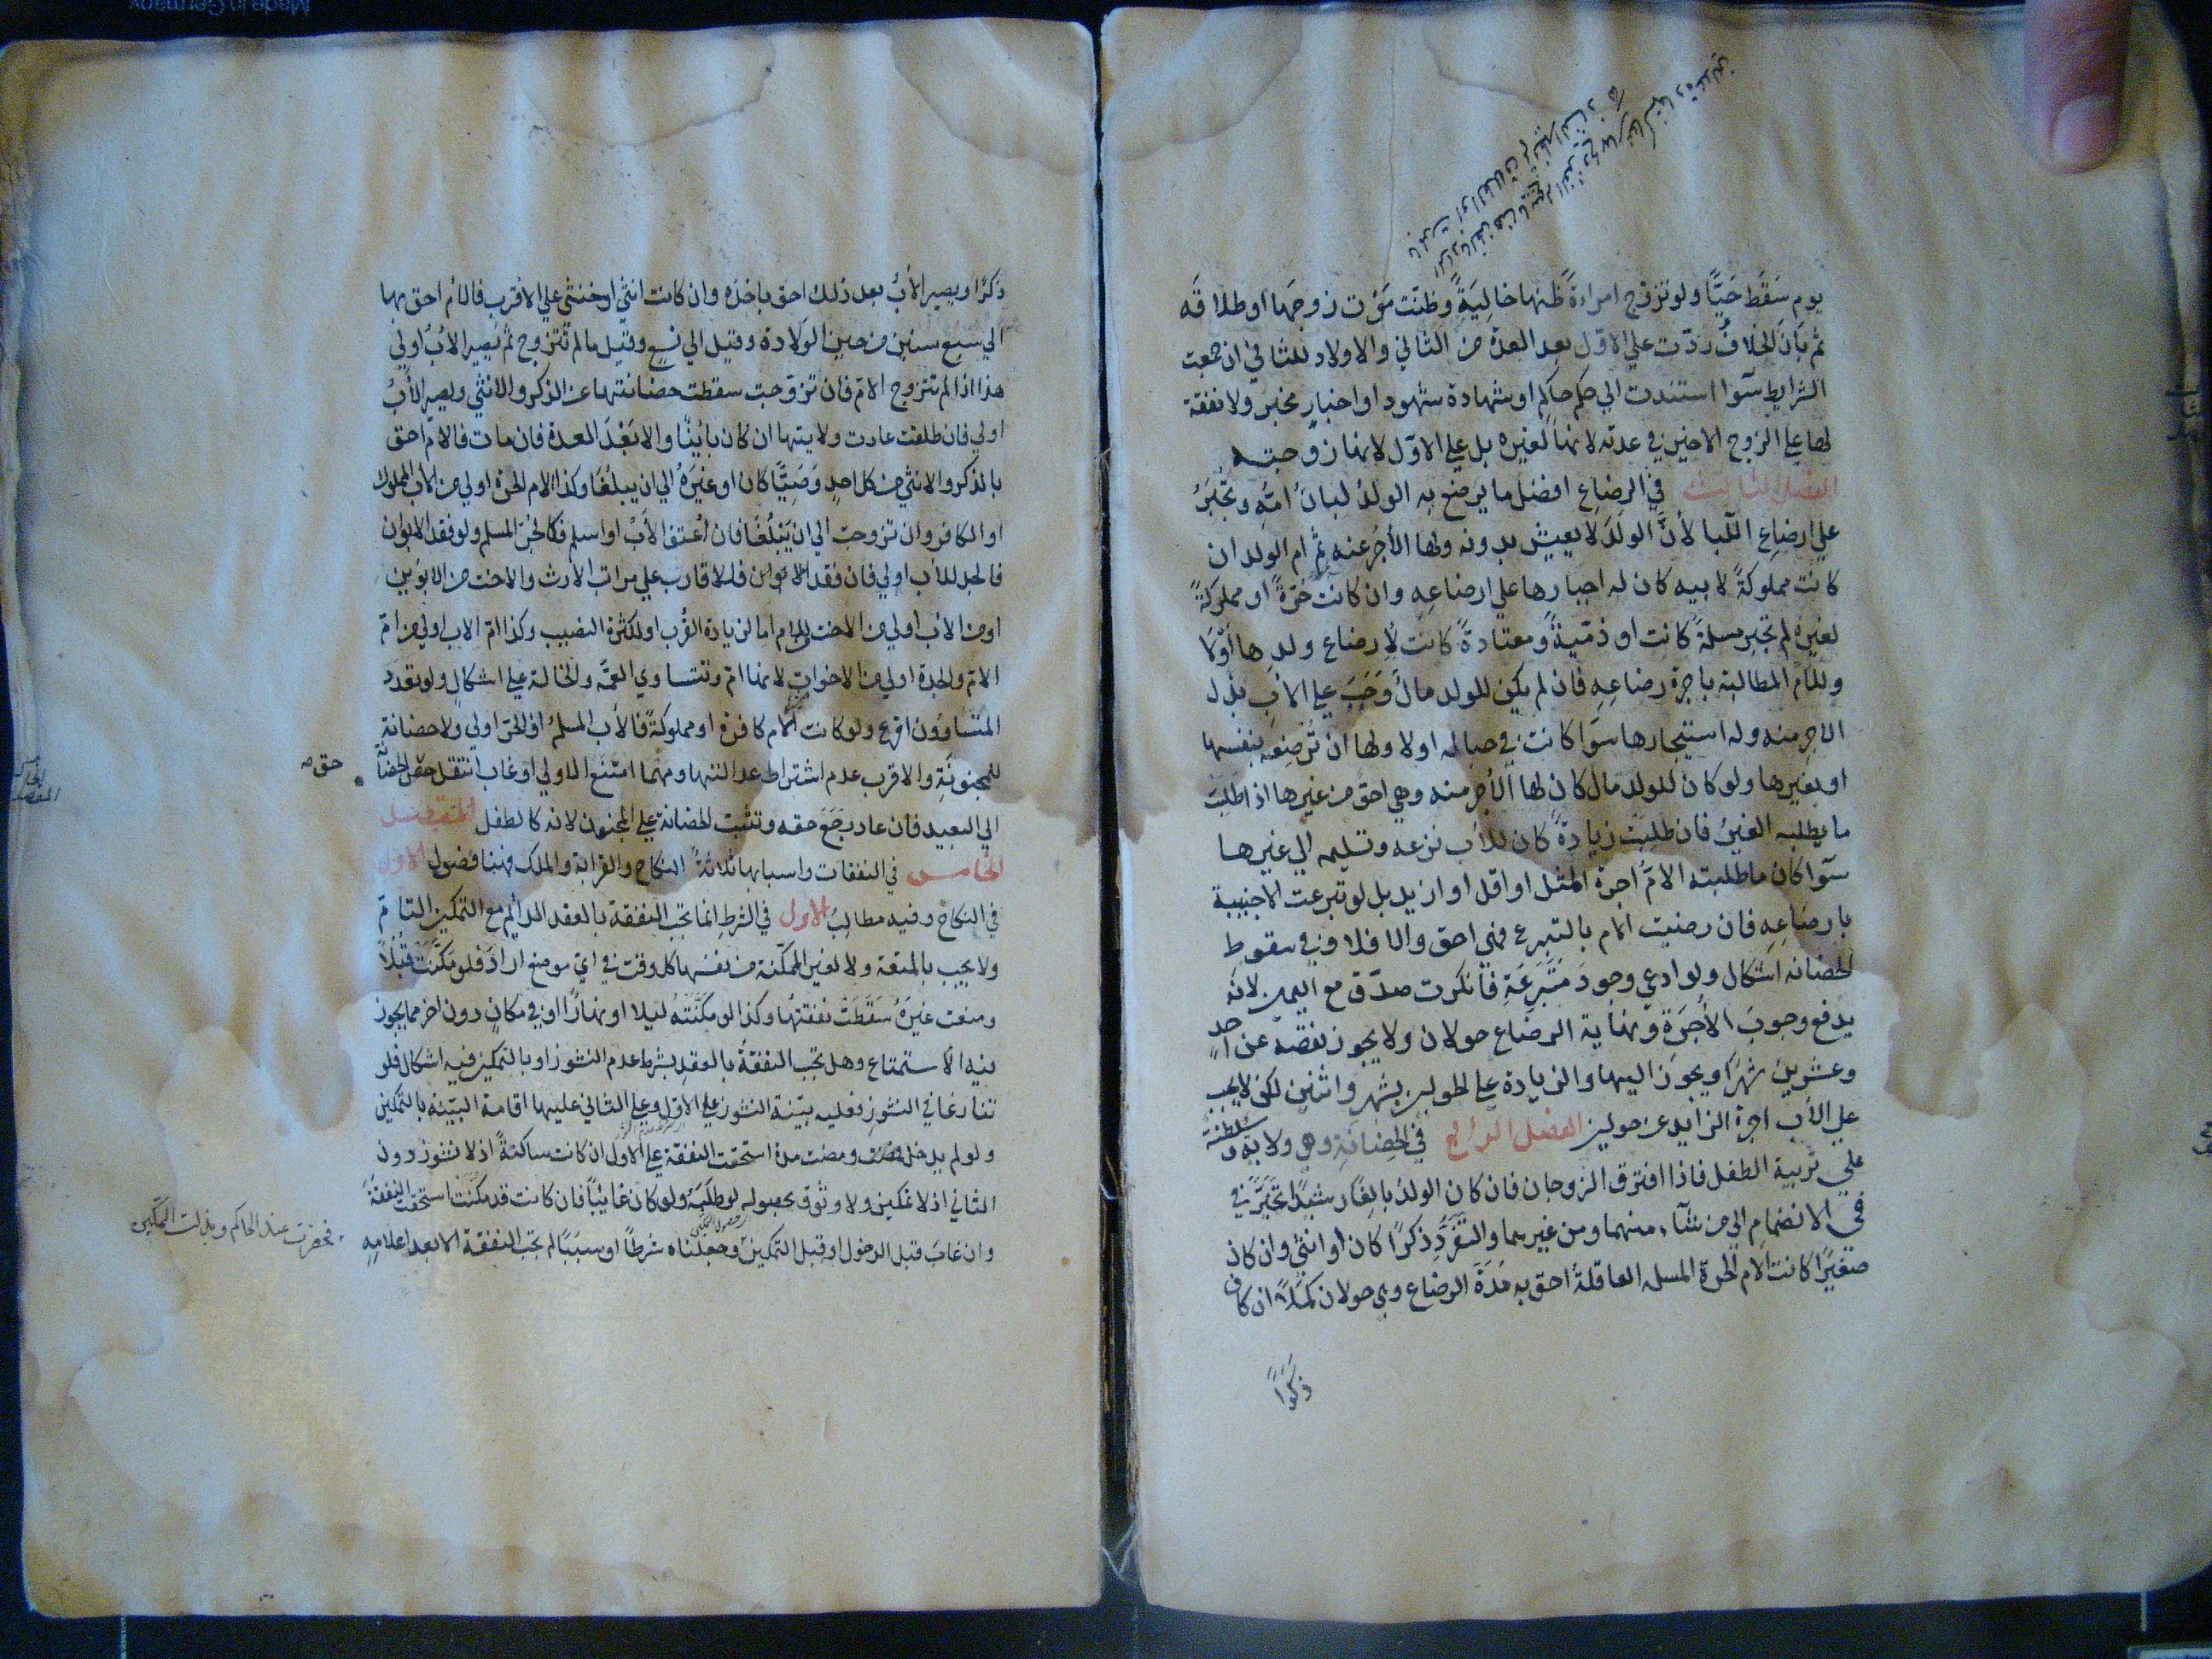 يوم سَقَطَ حَيًّا ولو تزوّج امراءة ظنها خاليَةً وظنت مَوْت زوجهَا او طلاقَه
ثم بَانَ الخلافُ ردّت علي الاوّل بعد العدة من الثاني والاولاد للثاني ان جمعت
الشرايط سوآ استندت الي حكم حاكم او شهادة شهود او اخبار مخبر ولا نفقة
لها علي الزوج الاخير في عدته لانها لغيره بل علي الاوّل لانها زوجته
الفصل الثالث في الرضاع افضل ما يرضع به الولدُ لبانُ امّهِ وتُجْبَرُ
علي ارضاع اللبا لأنّ الولَدَ لا يعيش بدونه ولها الأجرُ عنه ثم ام الولد ان
كانت مملوكةً لابيه كان له اجبارها علي ارضاعهِ وان كانت حُرّةً او مملوكةً
لغيره لم تجبر مسلمةً كانت او ذمّيةً ومعتادةً كانت لِأرضاع ولدِها اوْ لَا
وللأم المطالبة باجرة رضاعِهِ فان لم يكن للولد مالٌ وَجَبَ علي الأبِ بذل
الاجرِ منه وله استيجارها سوَا كانت في حباله اولا ولها ان تُرْضِعَه بنفسِها
او بغيرها ولو كان للولد مال كان لها الأجر منه وهي احقّ من غيرها اذا طلبَت
ما يطلبه الغيرُ فان طلبَت زيادةً كان للاب نزعه وتسليمه الي غيرها
سوآ كان ما طلبته الامُّ اجرة المثل او اقل او ازيد بل لو تبرعت الاجنبية
بارضاعِهِ فان رضيت الام بالتبرع فهي احق والا فلا وفي سقوط
الحضانه اشكال ولو ادعي وجودَ مُتَبَرِعَةٍ فانكرت صدّق مع اليمين لانّه
يدفع وجوبَ الأُجرَةِ ونهاية الرضاع حولان ولا يجوز نقصه عن احدٍ
وعشرين شهرًا ويجوز اليها والزيادة علي الحولين بشهر واثنين لكن لا يجب
علي الأب اجرة الزايد عن حولين الفصل الرابع في الحِضَانَةِ وهي ولايةٌ وسلطنة
علي تربية الطفل فاذا افترق الزوجان فان كان الولدُ بالِغًا رشيدًا تَخَيَّرَ في
في الانضمامِ الي من شآء منهما ومن غيرهما والتفرُّدِ ذكرًا كان او انثي وان كان
صغيرًا كانت الام الحرة المسلمه العاقلةُ احق به مُدّةَ الرضاع وهي حولان كمَلًا ان كان
ذَكَرًا
ذكرًا ويصير الأبُ بعد ذلك احق باخذه وان كانت انثي او خنثي علي الاقرب فالأم احق بها
الي سبع سنين من حين الوَلادة وقيل الي تسع وقيل مالم تَتزوج ثم يَصير الأبُ اولي
هذا اذا لم تتزوج الامّ فان تزوّجت سقطت حضانتها عن الذكر والانثي ويصير الأبُ
اولي فان طلقت عادت ولايتها ان كان بائِنًا والا بَعْدَ العدة فان مات فالامّ احق
بالذكر والانثي من كل احدٍ وَصِيًّا كان او غيرَهُ الي ان يبلُغَا وكذا الام الحرة اولي من الأب المملوك
او الكافر وان تزوجت الي ان يَبْلُغَا فان أُعتق الأبُ او اسلم فكالحُر المسلم ولو فقد الابوان
فالجد للأب اولي فان فقد الابوان فللاقارب علي مراتب الأرث والاخت من الابوَين
او من الأبِ اولي من الاخت للام اما لزيادة القُرب او لكثرة النصيب وكذا امّ الاب اولي من امّ
الامّ والجدة اولي من الاخوات لانها امّ وتتساوي العمّة والخالة علي اشكالٍ ولو تعدد
المتساوُون اقرع ولو كانت الأم كافرةً او مملوكةً فالأب المسلمُ او الحر اولي ولا حضانة
للمجنونَةِ والاقرب عدم اشتراط عدالتها ومهما امتنع الاولي او غاب انتقل حق الحضانة
حق صه
الي البعيد فان عاد رجَعَ حقه وتثبت الحضانة علي المجنون لانه كالطفل المقصد
الخامس في النفقات واسبابها ثلاثةٌ النكاح والقرابة والملك فهنا فصول الاول
في النكاح وفيه مطالبُ الاول في الشرطِ انما تجب النفقة بالعقد الدايم مع التمكين التامّ
ولا يجب بالمتعة ولا لغير الممكّنة من نفسها كل وقت في ايّ موضع ارادَ فلو مَكّنَتْ قُبُلًا
ومنعت غيرَهُ سَقَطَتْ نفقتُها وكذا لو مكّنَتهُ ليلا او نهارًا او في مكانٍ دون اخر مما يجوز
فيه الاستمتاع وهل تجب النفقةُ بالعقدِ بشرط عدم النشوز او بالتمكين فيه اشكال فلو
تنازعا في النشوزِ فعليه بيّنة النشوز علي الأوّل وعلي الثاني عليها اقامة البيّنة بالتمكين
ولو لم يدخل ومضت مدة استحقت النفقة علي الاول ان كانت ساكتةً اذ لا نشوز دون
الثاني اذ لا تمكين ولا وثوق بحصوله لو طلبَهُ ولو كان غائِبًا فان كانت قد مكّنَت استحقت النفقةَ
وان غابَ قبل الدخول او قبل التمكين وجعلناه شرطًا او سببًا لم تجب النفقة الا بعد اعلامِهِ
فحضرت عند الحاكم وبذلت التمكين